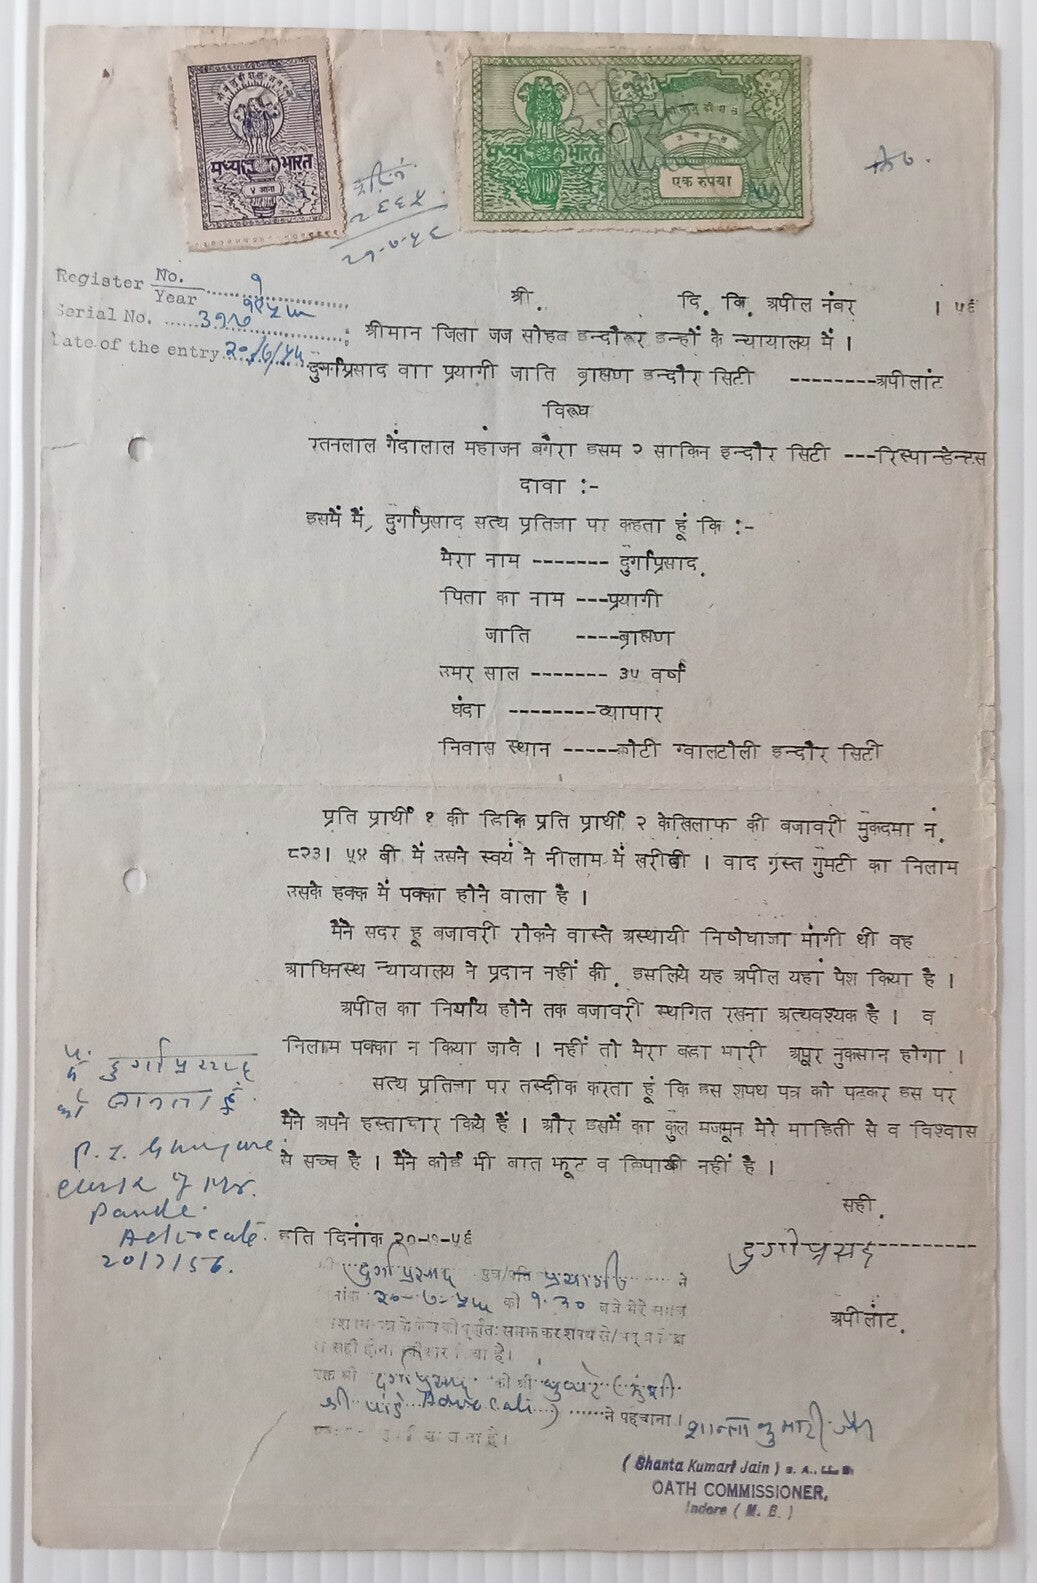 मध्य भारत
४ आना
मध्य भारत
एक रुपया
२६६५
२०-७-५६
Register No.
Year
Serial No. ३१७
Date of the entry २०/७/५५
श्री. दि. कि. अपील नंबर । ५६
श्रीमान जिला जज सोहब इन्दौर इन्हों के न्यायालय में ।
दुर्गाप्रसाद वाा प्रयागी जाति ब्राह्मण इन्दौर सिटी --------अपीलांट
विरूध
रतनलाल गेंदालाल महाजन बगैरा इसम २ साकिन इन्दौर सिटी ---रिस्पान्डेन्टस
दावा :-
इसमें मैं, दुर्गाप्रसाद सत्य प्रतिज्ञा पर कहता हूं कि :-
मेरा नाम ------- दुर्गाप्रसाद.
पिता का नाम ---प्रयागी
जाति ----ब्राह्मण
उमर साल ------- ३५ वर्ष
धंदा --------व्यापार
निवास स्थान -----छोटी ग्वालटोली इन्दौर सिटी
प्रति प्रार्थी १ की डिक्रि प्रति प्रार्थी २ केखिलाफ की बजावरी मुकदमा नं.
८२३। ५४ बी में उसने स्वयं ने नीलाम में खरीदी । वाद ग्रस्त गुमटी का निलाम
उसके हक्क में पक्का होने वाला है ।
मैंने सदर हू बजावरी रोकने वास्ते अस्थायी निषेधाज्ञा मांगी थी वह
आधिनस्थ न्यायालय ने प्रदान नहीं की. इसलिये यह अपील यहां पेश किया है ।
अपील का निर्याय होने तक बजावरी स्थगित रखना अत्यवश्यक है । व
निलाम पक्का न किया जावे । नहीं तो मेरा बडा भारी अपूर नुकसान होगा ।
सत्य प्रतिज्ञा पर तस्दीक करता हूं कि इस शपथ पत्र को पढकर इस पर
मैंने अपने हस्ताक्षर किये हैं । और इसमें का कुल मजमून मेरे माहिती से व विश्वास
से सच्च है । मैंने कोई भी बात झूट व छिपाकी नहीं है ।
सही.
इति दिनांक २०-७-५६
दुर्गाप्रसाद
अपीलांट.
मैं दुर्गाप्रसाद
को जानता हूँ.
Clerk of Mr.
Pande
Advocate
20/7/56.
दुर्गाप्रसाद पुत्र/पति प्रयागी ने
२०-७-५५ को १.३० बजे मेरे समक्ष
समझ कर शपथ से
दुर्गाप्रसाद को श्री
श्री पांडे Advocate) ने पहचाना ।
शान्ता कुमारी जैन
( Shanta Kumari Jain ) B. A., LL. B.
OATH COMMISSIONER,
Indore ( M. B. )